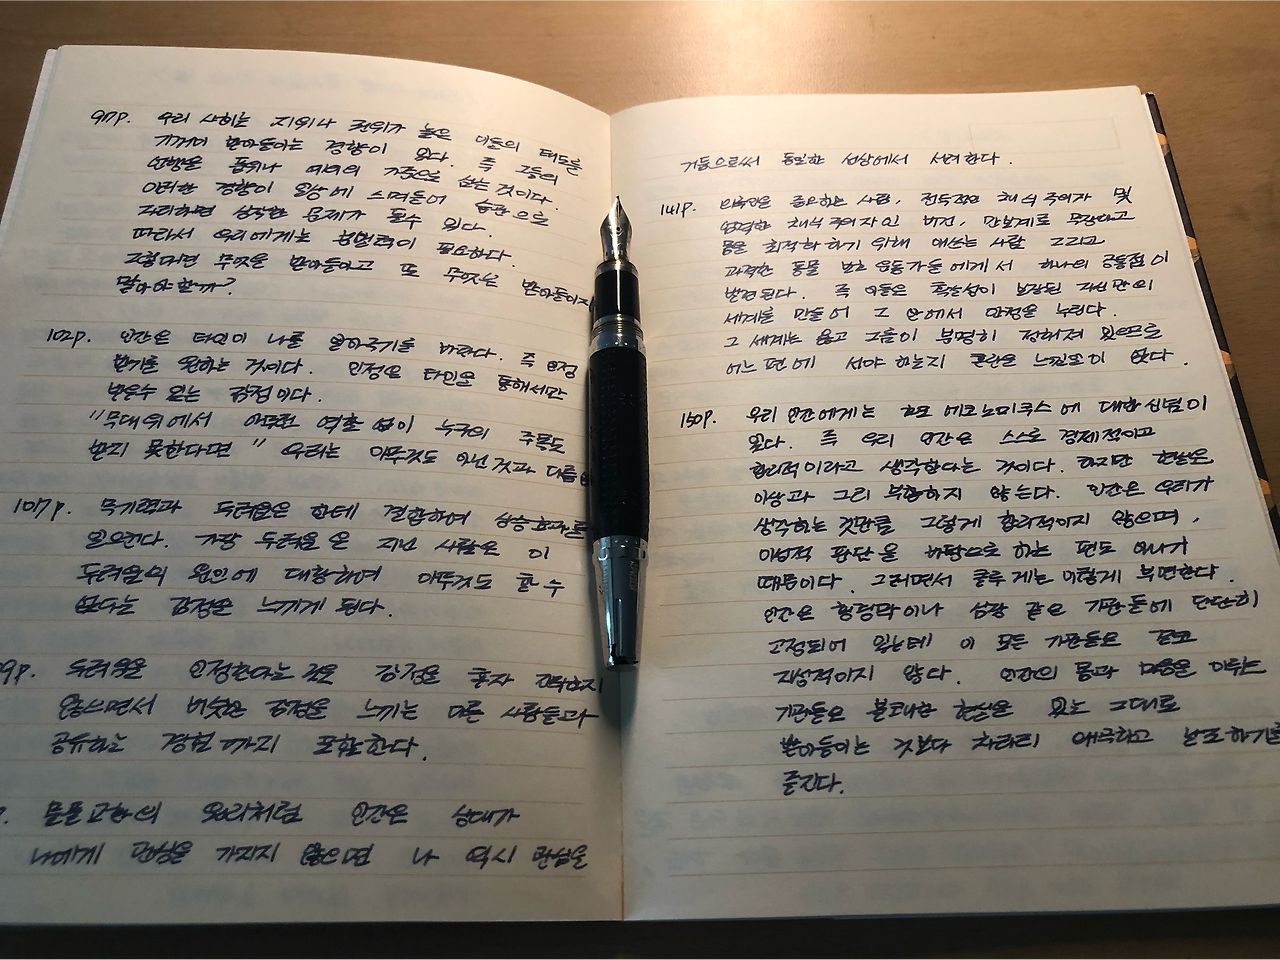 97p. 우리 사회는 지위나 권위가 높은 이들의 태도를
기꺼이 받아들이는 경향이 있다. 즉 그들의
언행을 품위나 예의의 기준으로 삼는 것이다.
이러한 경향이 일상에 스며들어 습관으로
자리하면 심각한 문제가 될수 있다.
따라서 우리에게는 분별력이 필요하다.
그렇다면 무엇을 받아들이고 또 무엇은 받아들이지
말아야 할까?
102p. 인간은 타인이 나를 알아주기를 바란다. 즉 인정
받기를 원하는 것이다. 인정은 타인을 통해서만
받을수 있는 감정이다.
"무대위에서 어떠한 역할 없이 누구의 주목도
받지 못한다면" 우리는 아무것도 아닌 것과 다름
107p. 무기력과 두려움은 한데 결합하여 상승효과를
일으킨다. 가장 두려움을 지닌 사람은 이
두려움의 원인에 대항하여 아무것도 할 수
없다는 감정을 느끼게 된다.
9p. 두려움을 인정한다는 것은 감정을 혼자 간직하지
않으면서 비슷한 감정을 느끼는 다른 사람들과
공유하는 경험까지 포함한다.
물물교환의 원리처럼 인간은 상대가
나에게 관심을 가지지 않으면 나 역시 관심을
거둠으로써 동일한 선상에서 사려한다.
141p. 만족을 중요하는 사람, 전투적인 채식주의자 및
엄격한 채식주의자인 비건, 만보계로 무장하고
몸을 최적화하기 위해 애쓰는 사람 그리고
과격한 동물 보호 운동가들에게서 하나의 공통점이
발견된다. 즉 이들은 확실성이 보장된 자신만의
세계를 만들어 그 안에서 안정을 누린다.
그 세계는 옳고 그름이 분명히 정해져 있으므로
어느 편에 서야 하는지 곤란을 느낄일이 없다.
150p. 우리 인간에게는 호모 에코노미쿠스에 대한 신념이
있다. 즉 우리 인간은 스스로 경제적이고
합리적이라고 생각한다는 것이다. 하지만 현실은
이상과 그리 부합하지 않는다. 인간은 우리가
생각하는 것만큼 그렇게 합리적이지 않으며,
이성적 판단을 바탕으로 하는 편도 아니기
때문이다. 그러면서 클루게는 이렇게 부연한다.
인간은 횡격막이나 심장 같은 기관들에 단단히
고정되어 있는데 이 모든 기관들은 결코
지성적이지 않다. 인간의 몸과 마음을 이루는
기관들은 불쾌한 현실을 있는 그대로
받아들이는 것보다 차라리 왜곡하고 변조하기를
즐긴다.